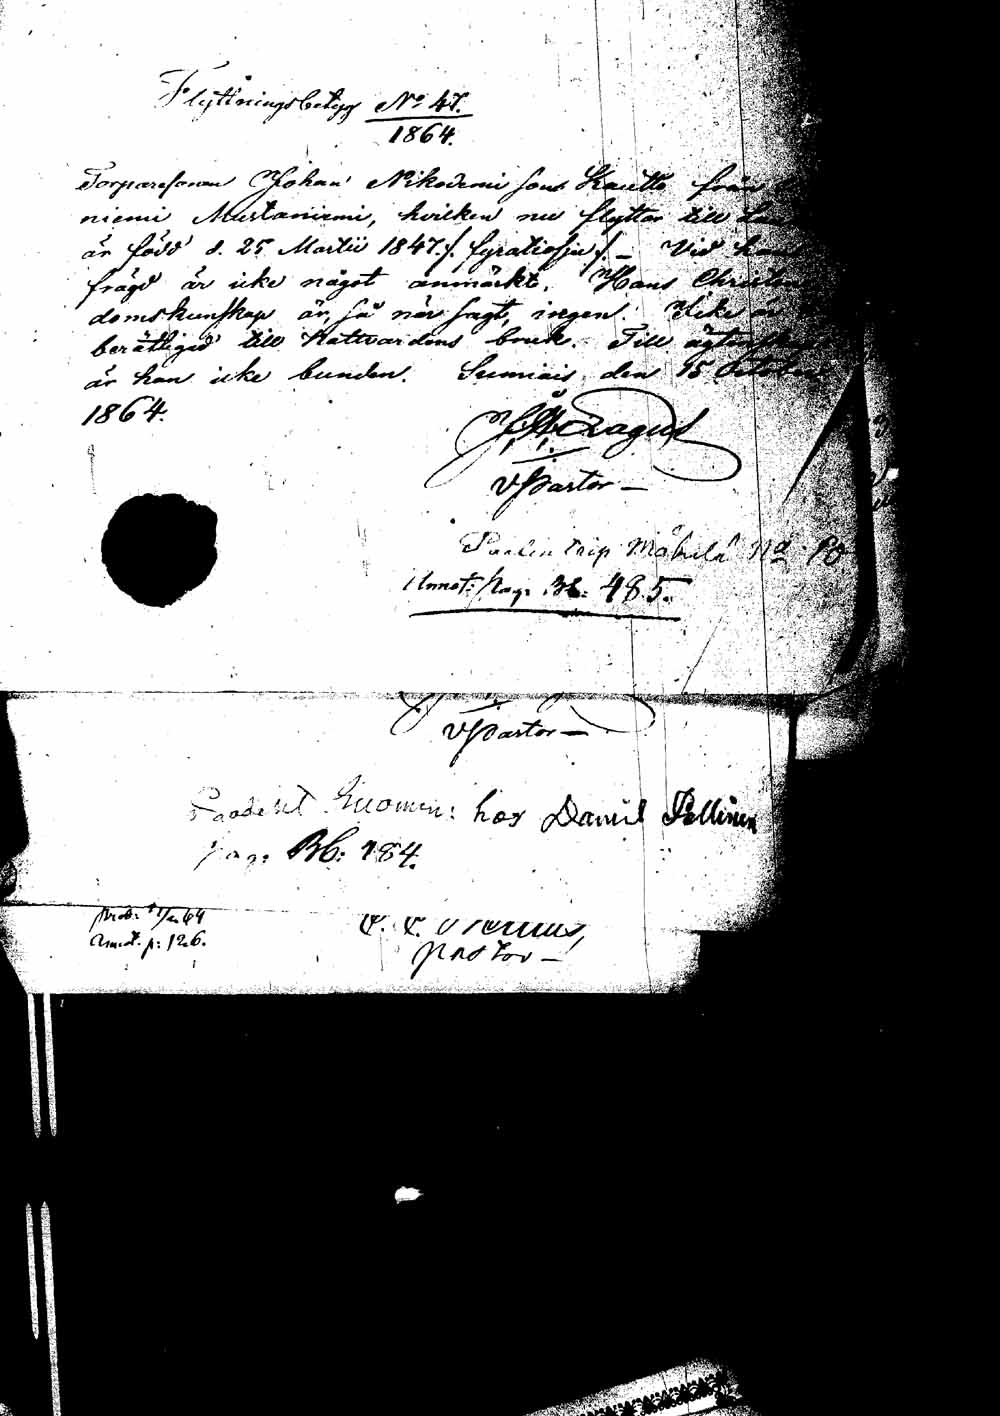 Flyttningsbetyg No 47.
1864.
Torparesonen Johan Nikodemi son Kautto från
niemi Mustaniemi, hvilken nu flyttar till
är född d. 25 Martii 1847./. fyratiosju /. – Vid hans
frägd är icke något anmärkt. Hans Christen
domskunskap är, så når sagt, ingen. Icke är
berättigad till Nattvardens bruk. Till ägtenskap
är han icke bunden. Sumiais, den 15 October
1864.
VPastor –
Mäkelä No 10
Annot: pag. 485.
VPastor –
hos Daniel Pellinen
pag: 184.
Annot. p: 126.
pastor –